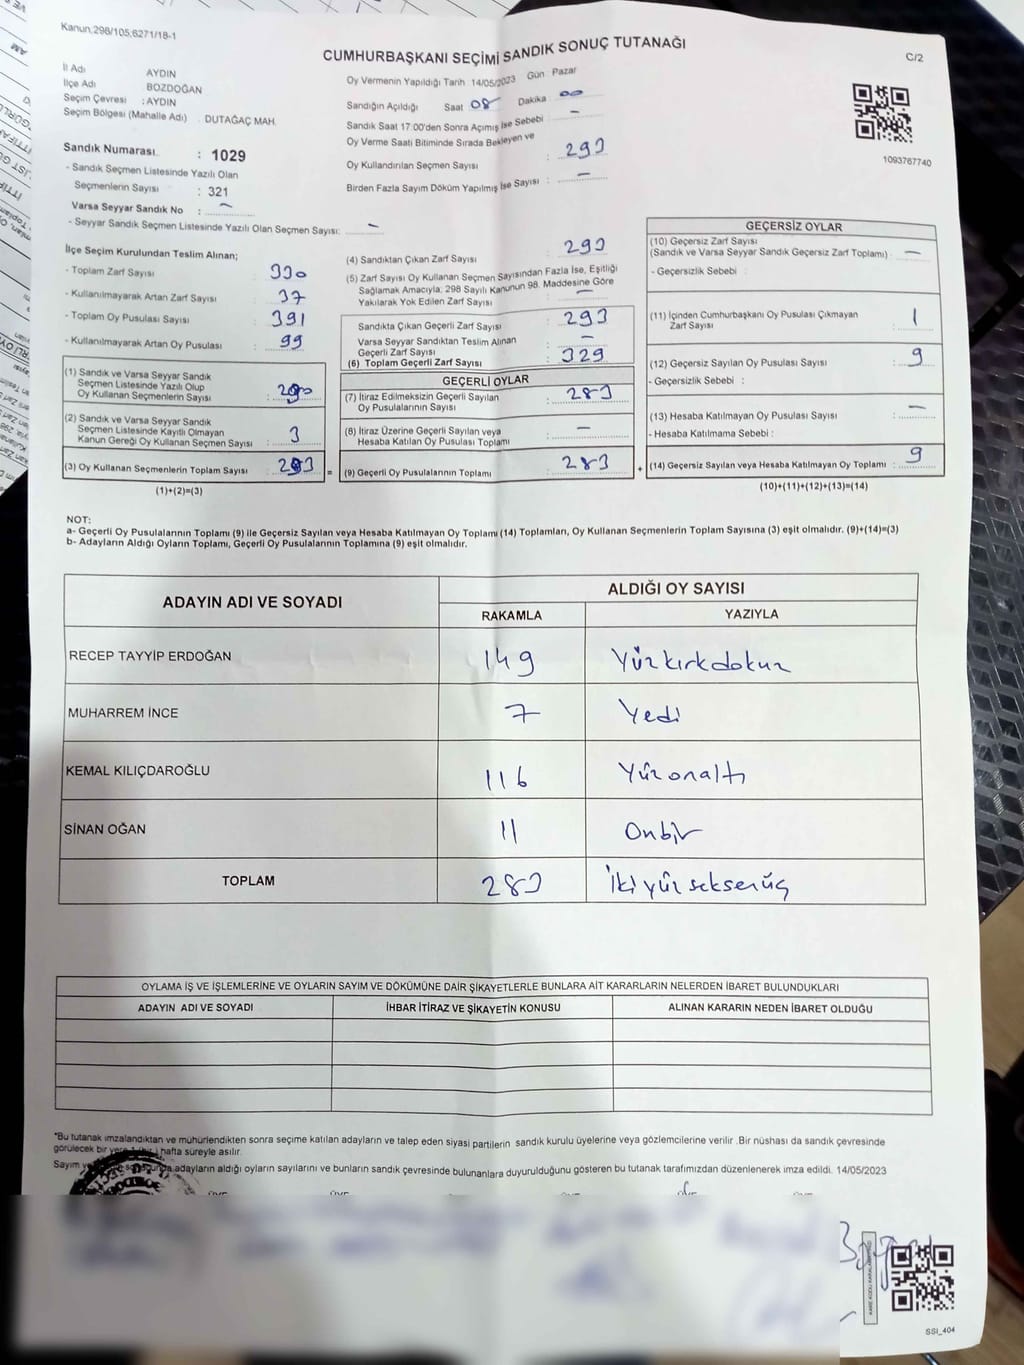 Kanun,298/105,6271/18-1
CUMHURBAŞKANI SEÇİMİ SANDIK SONUÇ TUTANAĞI
C/2
İl Adı AYDIN
İlçe Adı BOZDOĞAN
Seçim Çevresi : AYDIN
Seçim Bölgesi (Mahalle Adı) . DUTAĞAÇ MAH.
Sandık Numarası : 1029
- Sandık Seçmen Listesinde Yazılı Olan
Seçmenlerin Sayısı : 321
Varsa Seyyar Sandık No : -
- Seyyar Sandık Seçmen Listesinde Yazılı Olan Seçmen Sayısı: -
Oy Vermenin Yapıldığı Tarih 14/05/2023 Gün Pazar
Sandığın Açıldığı Saat 08 Dakika 00
Sandık Saat 17:00'den Sonra Açımış İse Sebebi -
Oy Verme Saati Bitiminde Sırada Bekleyen ve
Oy Kullandırılan Seçmen Sayısı : 293
Birden Fazla Sayım Döküm Yapılmış İse Sayısı : -
1093767740
İlçe Seçim Kurulundan Teslim Alınan;
- Toplam Zarf Sayısı : 330
- Kullanılmayarak Artan Zarf Sayısı : 37
- Toplam Oy Pusulası Sayısı : 391
- Kullanılmayarak Artan Oy Pusulası : 99
(1) Sandık ve Varsa Seyyar Sandık
Seçmen Listesinde Yazılı Olup
Oy Kullanan Seçmenlerin Sayısı : 290
(2) Sandık ve Varsa Seyyar Sandık
Seçmen Listesinde Kayıtlı Olmayan
Kanun Gereği Oy Kullanan Seçmen Sayısı : 3
(3) Oy Kullanan Seçmenlerin Toplam Sayısı : 293 =
(1)+(2)=(3)
(4) Sandıktan Çıkan Zarf Sayısı : 293
(5) Zarf Sayısı Oy Kullanan Seçmen Sayısından Fazla İse, Eşitliği
Sağlamak Amacıyla, 298 Sayılı Kanunun 98. Maddesine Göre
Yakılarak Yok Edilen Zarf Sayısı : -
Sandıkta Çıkan Geçerli Zarf Sayısı : 293
Varsa Seyyar Sandıktan Teslim Alınan
Geçerli Zarf Sayısı : -
(6) Toplam Geçerli Zarf Sayısı : 329
GEÇERLİ OYLAR
(7) İtiraz Edilmeksizin Geçerli Sayılan
Oy Pusulalarının Sayısı : 283
(8) İtiraz Üzerine Geçerli Sayılan veya
Hesaba Katılan Oy Pusulası Toplamı : -
(9) Geçerli Oy Pusulalarının Toplamı : 283 +
GEÇERSİZ OYLAR
(10) Geçersiz Zarf Sayısı
(Sandık ve Varsa Seyyar Sandık Geçersiz Zarf Toplamı) : -
- Geçersizlik Sebebi :
(11) İçinden Cumhurbaşkanı Oy Pusulası Çıkmayan
Zarf Sayısı : 1
(12) Geçersiz Sayılan Oy Pusulası Sayısı : 9
- Geçersizlik Sebebi :
(13) Hesaba Katılmayan Oy Pusulası Sayısı : -
- Hesaba Katılmama Sebebi :
(14) Geçersiz Sayılan veya Hesaba Katılmayan Oy Toplamı : 9
(10)+(11)+(12)+(13)=(14)
NOT:
a- Geçerli Oy Pusulalarının Toplamı (9) ile Geçersiz Sayılan veya Hesaba Katılmayan Oy Toplamı (14) Toplamları, Oy Kullanan Seçmenlerin Toplam Sayısına (3) eşit olmalıdır. (9)+(14)=(3)
b- Adayların Aldığı Oyların Toplamı, Geçerli Oy Pusulalarının Toplamına (9) eşit olmalıdır.
ADAYIN ADI VE SOYADI
ALDIĞI OY SAYISI
RAKAMLA YAZIYLA
RECEP TAYYİP ERDOĞAN 149 Yüzkırkdokuz
MUHARREM İNCE 7 Yedi
KEMAL KILIÇDAROĞLU 116 Yüzonaltı
SİNAN OĞAN 11 Onbir
TOPLAM 283 İkiyüzseksenüç
OYLAMA İŞ VE İŞLEMLERİNE VE OYLARIN SAYIM VE DÖKÜMÜNE DAİR ŞİKAYETLERLE BUNLARA AİT KARARLARIN NELERDEN İBARET BULUNDUKLARI
ADAYIN ADI VE SOYADI İHBAR İTİRAZ VE ŞİKAYETİN KONUSU ALINAN KARARIN NEDEN İBARET OLDUĞU
"Bu tutanak imzalandıktan ve mühürlendikten sonra seçime katılan adayların ve talep eden siyasi partilerin sandık kurulu üyelerine veya gözlemcilerine verilir .Bir nüshası da sandık çevresinde
görülecek bir hafta süreyle asılır.
Sayım adayların aldığı oyların sayılarını ve bunların sandık çevresinde bulunanlara duyurulduğunu gösteren bu tutanak tarafımızdan düzenlenerek imza edildi. 14/05/2023
SSI_404